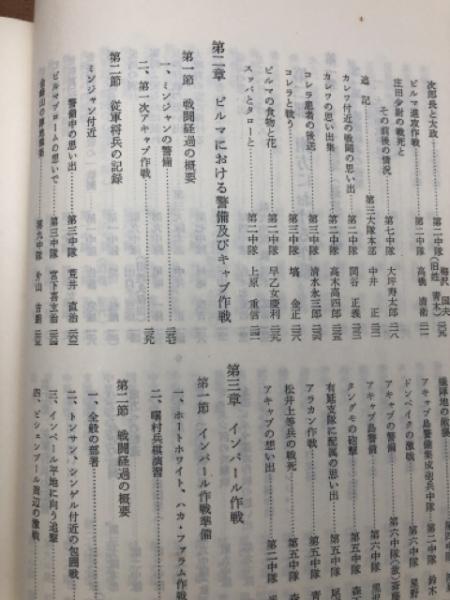 次郎長と大政……第二中隊
ビルマ進攻作戦……第二中隊 高橋 清衛
庄田少尉の戦死と
その前後の情況……第七中隊 大坪寿太郎 二一八
追記……第三大隊本部 中井 正
カレワ付近の戦闘の思い出……第二中隊 関谷 正義
カレワの思い出集……第二中隊 高木高四郎
コレラ患者の後送……第三中隊 清水永三郎
コレラと戦う……第三中隊 塙 金正
ビルマの食物と花……第二中隊 早乙女慶利
スッパとタローと……第二中隊 上原 重信
第二章 ビルマにおける警備及びキャブ作戦
第一節 戦闘経過の概要
一、ミンジャンの警備
二、第一次アキャブ作戦
第二節 従軍将兵の記録
ミンジャン付近
警備中の思い出……第三中隊 荒井 直治
ビルマプロームの思いで……第三中隊 宮下喜支治
アキャブ島警備集成砲兵中隊
ドンベイクの激戦……第六中隊 星野
アキャブの警備……第六中隊
アキャブ島警備……第六中隊
タングモの砲撃……第五中隊
有延支隊に配属の思い出……第五中隊
アラカン作戦……第五中隊
松井上等兵の戦死……第五中隊
アキャブの想い出……第二中隊
第三章 インパール作戦
第一節 インパール作戦準備
一、ホートホワイト、ハカ・ファラム作戦
二、曙村兵棋演習
第二節 戦闘経過の概要
一、全般の部署
二、トンサン、シンゲル付近の包囲戦
三、インパール平地に向う追撃
四、ビシェンプール周辺の激戦